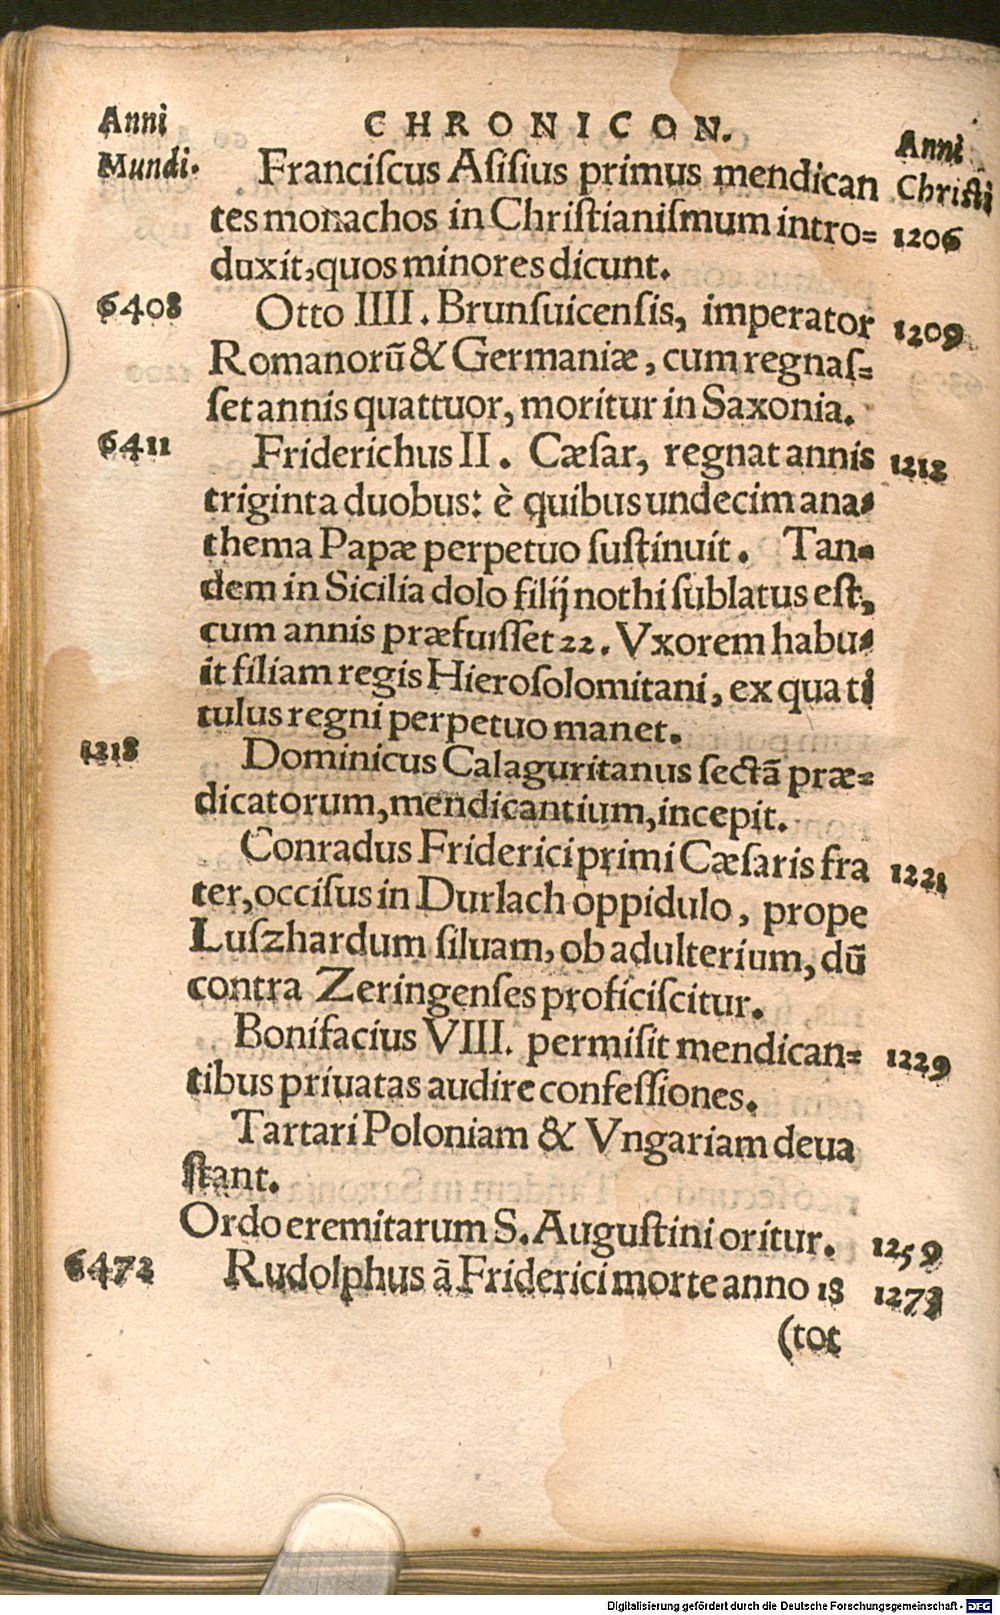 Anni CHRONICON. Anni
Mundi. Franciſcus Aſiſius primus mendican Chriſti
tes monachos in Chriſtianiſmum intro= 1206
duxit, quos minores dicunt.
6408 Otto IIII. Brunſuicenſis, imperator 1209
Romanorũ & Germaniæ, cum regnaſ=
ſet annis quattuor, moritur in Saxonia.
6411 Friderichus II. Cæſar, regnat annis 1212
triginta duobus: è quibus undecim ana=
thema Papæ perpetuo ſuſtinuit. Tan=
dem in Sicilia dolo filij nothi ſublatus eſt,
cum annis præfuiſſet 22. Vxorem habu=
it filiam regis Hieroſolomitani, ex qua ti
tulus regni perpetuo manet.
1218 Dominicus Calaguritanus ſectã præ=
dicatorum, mendicantium, incepit.
Conradus Friderici primi Cæſaris fra 1221
ter, occiſus in Durlach oppidulo, prope
Luſzhardum ſiluam, ob adulterium, dũ
contra Zeringenſes proficiſcitur.
Bonifacius VIII. permiſit mendican= 1229
tibus priuatas audire confeſſiones.
Tartari Poloniam & Vngariam deua
ſtant.
Ordo eremitarum S. Auguſtini oritur. 1259
6472 Rudolphus ã Friderici morte anno 18 1273
(tot
Digitalisierung gefördert durch die Deutsche Forschungsgemeinschaft - DFG